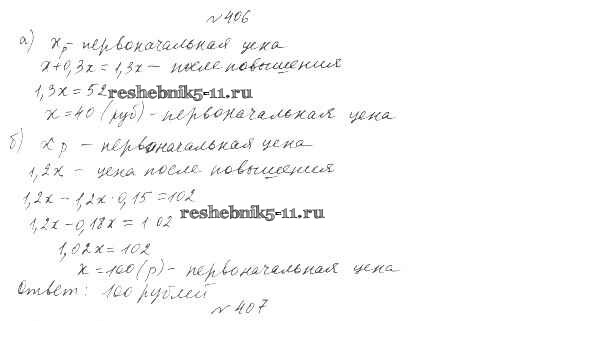 №406
а) x р - первоначальная цена
x+0,3x=1,3x - после повышения
1,3x=52 reshebnik5-11.ru
x=40(руб) - первоначальная цена
б) x р - первоначальная цена
1,2x - цена после повышения
1,2x - 1,2x·0,15=102
reshebnik5-11.ru
1,2x-0,18x=102
1,02x=102
x=100(р) - первоначальная цена
Ответ: 100 рублей
№407